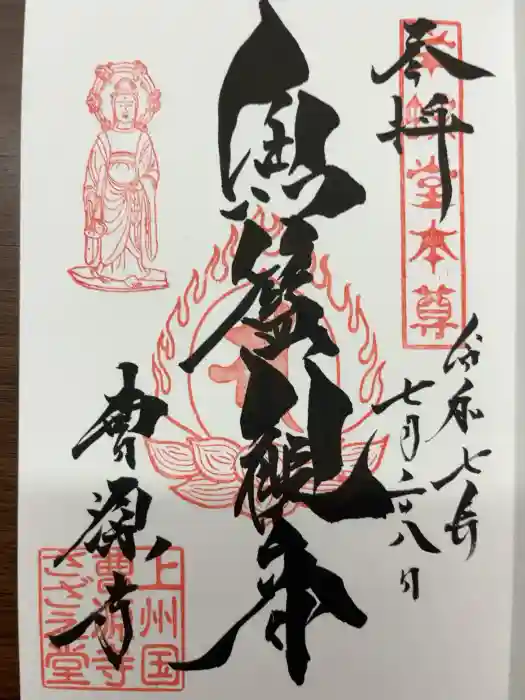 奉拝
栄螺堂本尊
令和七年
七月二十八日
魚籃観音
曹源寺
上州国
曹源寺
さざえ堂